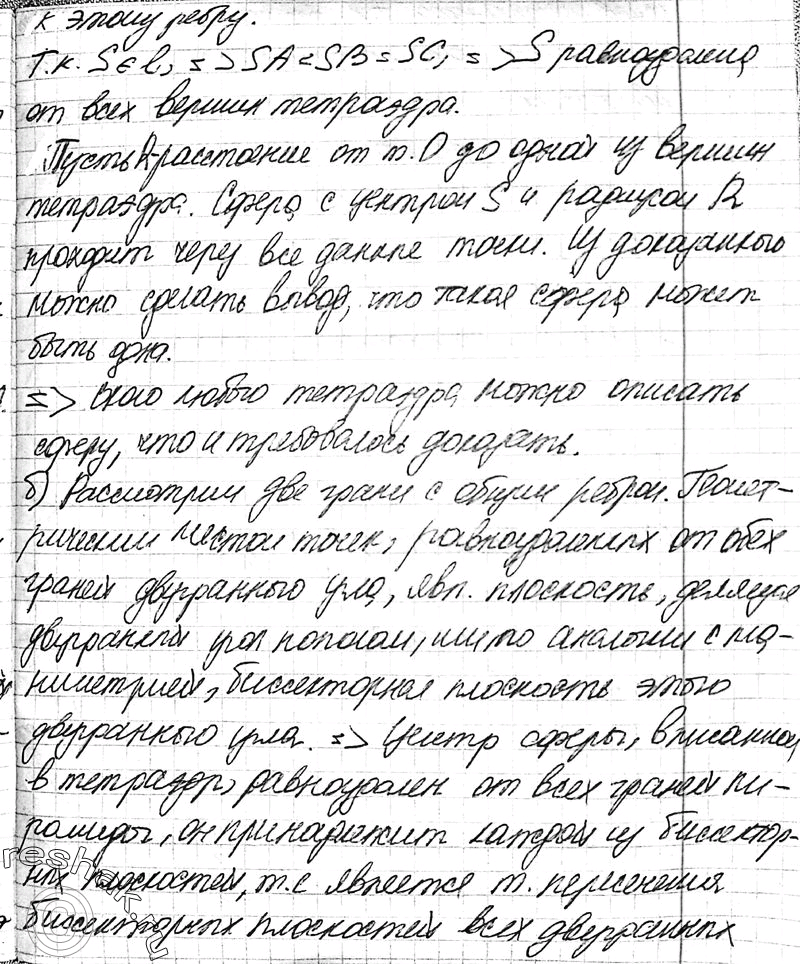 к этому ребру.
Т.к. S ∈ l, => SA = SB = SC, => S равноудалена
от всех вершин тетраэдра.
Пусть R-расстоение от т. О до одной из вершин
тетраэдра. Сфера с центром S и радиусом R
проходит через все данные точки. Из доказанного
можно сделать вывод, что такая сфера может
быть одна.
=> около любого тетраэдра можно описать
сферу, что и требовалось доказать.
б) Рассмотрим две грани с общим ребром. Геомет-
рическим местом точек, равноудаленных от обех
граней двугранного угла, явл. плоскость, делящая
двугранный угол пополам, или по аналогии с пла-
ниметрией, биссекторная плоскость этого
двугранного угла. => Центр сферы, вписанной
в тетраэдр, равноудален от всех граней пи-
рамиды, он принадлежит каждой из биссектор-
ных плоскостей, т.е является т. пересечения
биссекторных плоскостей всех двугранных
reshak.ru